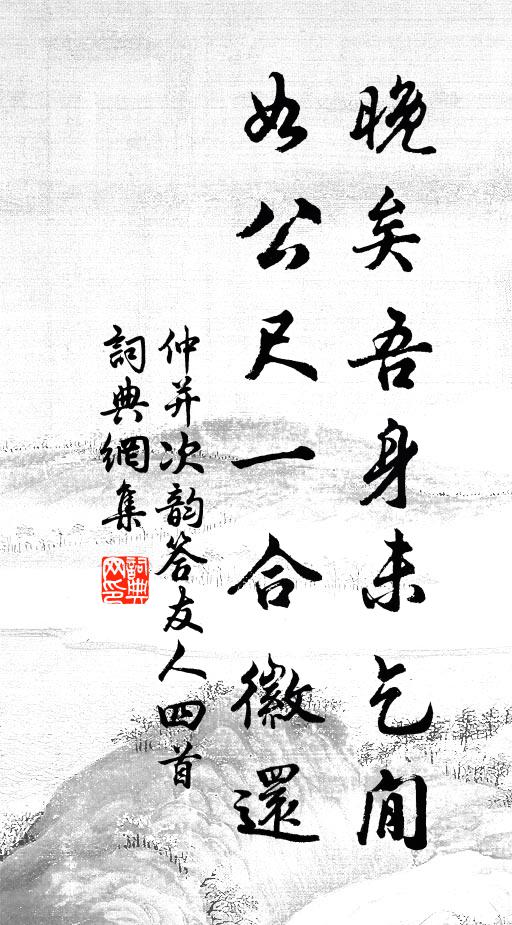 晚矣吾身未乞閒
如公尺一合徽還
仲并次韵答友人四首
詞典網集
詞典网印